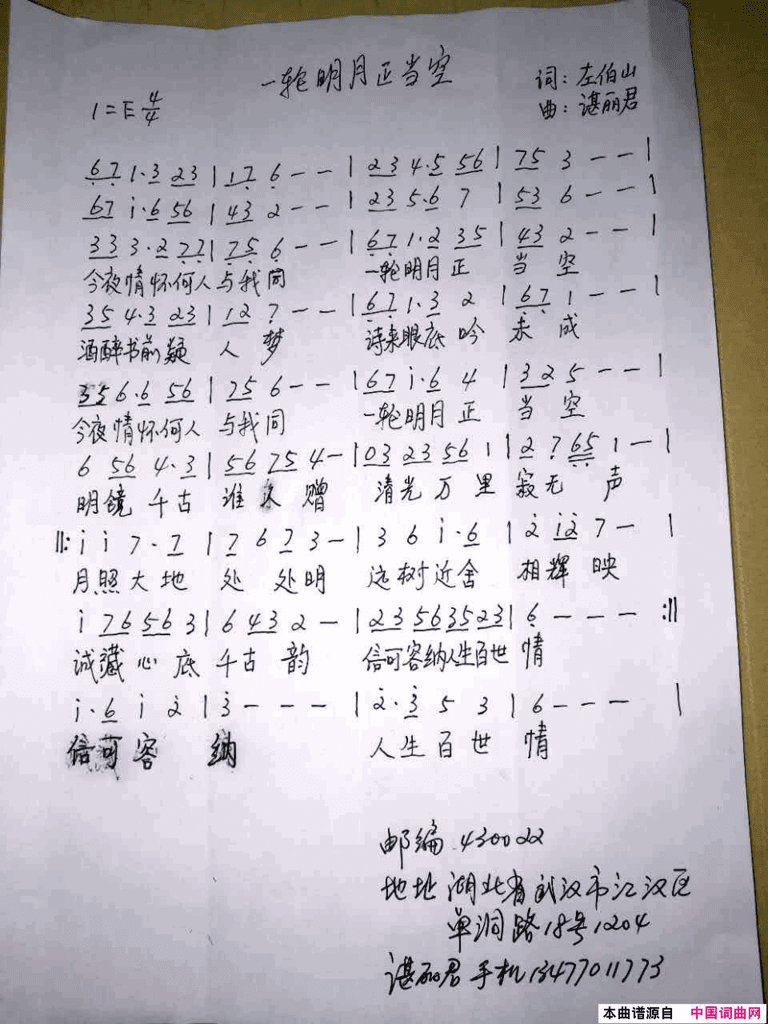 一轮明月正当空
1=E 4/4
词:左伯山
曲:谌丽君
67 1·3 23 | 17 6 - - | 23 4·5 56 | 75 3 - - |
67 i·6 56 | 43 2 - - | 23 5·6 7 | 53 6 - - |
333 3·2 77 | 75 6 - - | 67 1·2 35 | 43 2 - - |
今夜情怀何人与我同 一轮明月正 当 空
35 4·3 23 | 12 7 - - | 67 1·3 2 | 67 1 - - - |
酒醉书前疑 人 梦 诗来眼底吟 未 成
335 6·6 56 | 75 6 - - | 67 i·6 4 | 32 5 - - - |
今夜情怀何人 与我同 一轮明月正 当 空
6 56 4·3 | 56 75 4 - | 03 23 56 1 | 2 7 65 1 - |
明镜 千古 谁 人 赠 清光万里 寂无 声
‖: i i 7·7 | 7 6 7 3 - | 3 6 i·6 | 2 i2 7 - |
月照大地 处 处明 远树近舍 相辉 映
i 76 56 3 | 6 43 2 - | 23 56 35 23 | 6 - - - :‖
诚藏 心 底 千古 韵 信可容纳人生百世 情
i·6 i 2 | 3 - - - | 2·3 5 3 | 6 - - - |
信可容 纳 人生百世 情
邮编 430022
地址 湖北省武汉市江汉区
单洞路18号1204
谌丽君 手机13477011773
本曲谱源自 中国词曲网